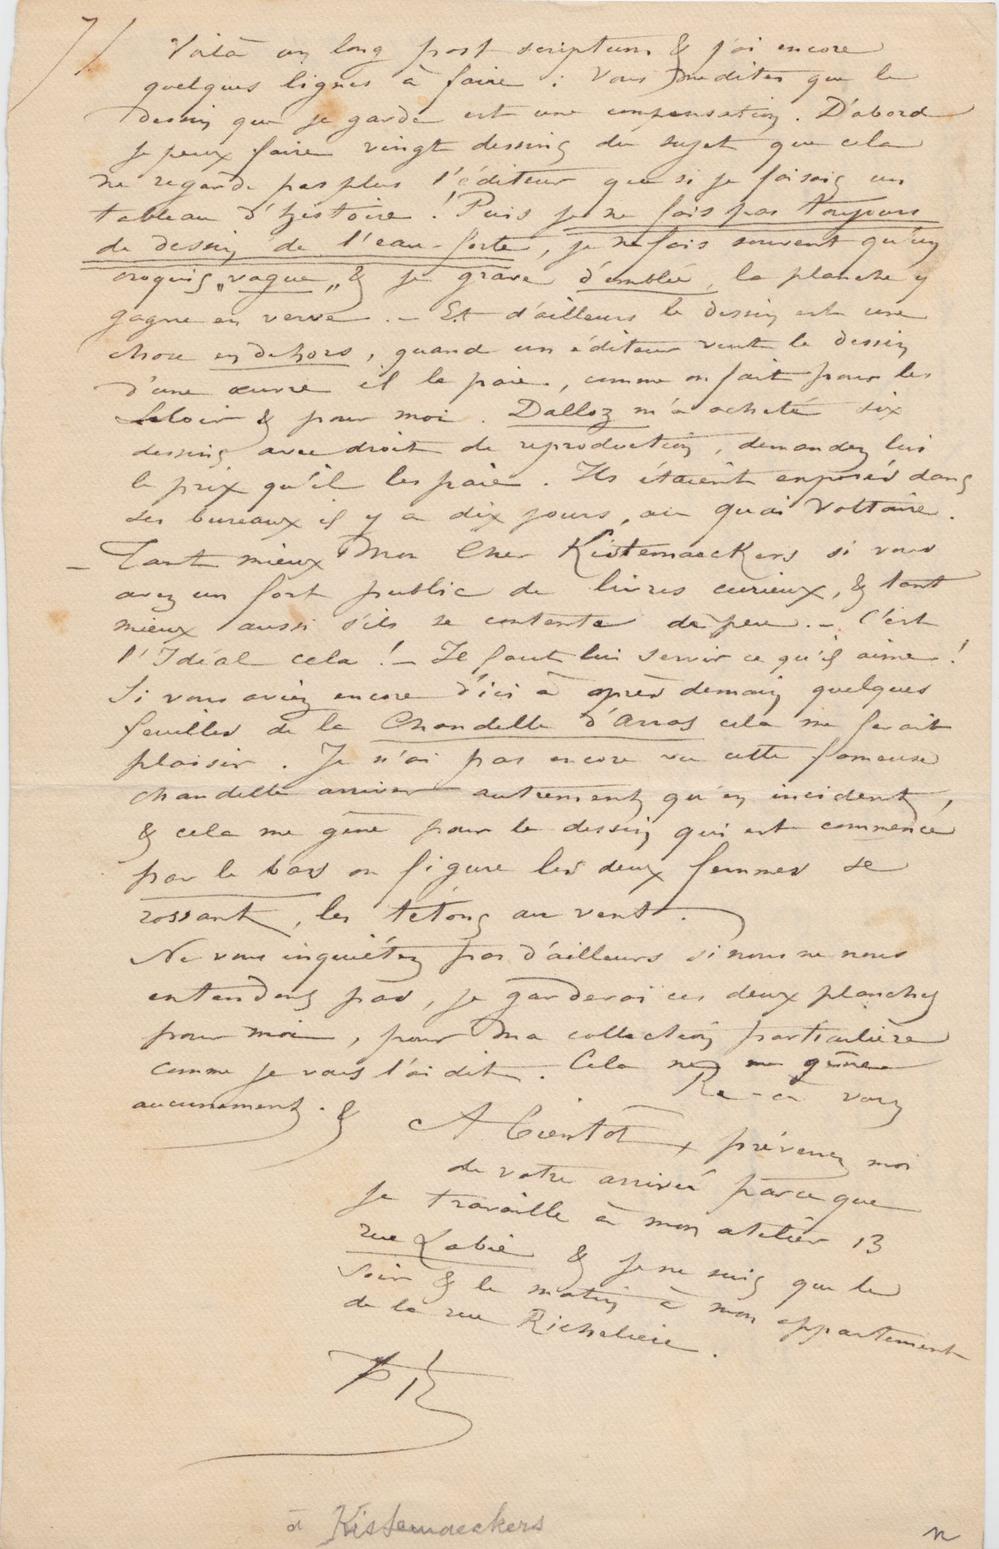 7/
Voilà un long post scriptum & j'ai encore
quelques lignes à faire : Vous me dites que le
dessin que je garde est une compensation. D'abord
je peux faire vingt dessins du sujet que cela
ne regarde pas plus l'éditeur que si je faisais un
tableau d'histoire ! Puis je ne fais pas toujours
de dessin de l'eau-forte, je ne fais souvent qu'un
croquis „vague„ & je grave d'emblée, la planche y
gagne en verve. — Et d'ailleurs le dessin est une
chose en dehors, quand un éditeur veut le dessin
d'une œuvre il le paie, comme on fait pour les
Leloir & pour moi. Dalloz m'a acheté six
dessins avec droit de reproduction, demandez lui
le prix qu'il les paie. Ils étaient exposés dans
ses bureaux il y a dix jours, au quai Voltaire.
— Tant mieux Mon Cher Kistemaeckers si vous
avez un fort public de livres curieux, & tant
mieux aussi s'ils se contente de peu. — C'est
l'Idéal cela ! — Il faut lui servir ce qu'il aime !
Si vous aviez encore d'ici à après demain quelques
feuilles de la Chandelle d'Arras cela me ferait
plaisir. Je n'ai pas encore vu cette fameuse
chandelle arriver autrement qu'en incident,
& cela me gêne pour le dessin qui est commencé
par le bas on figure les deux femmes se
rossant, les tétons au vent.
Ne vous inquiétez pas d'ailleurs si nous ne nous
entendons pas, je garderai ces deux planches
pour moi, pour ma collection particulière
comme je vous l'ai dit. Cela ne me gêne
aucunement. & Re-à vous
A bientôt, prévenez moi
de votre arrivée parce que
je travaille à mon atelier 13
rue Labie & je ne suis que le
soir & le matin à mon appartement
de la rue Richelieu.
à Kistemaeckers
n